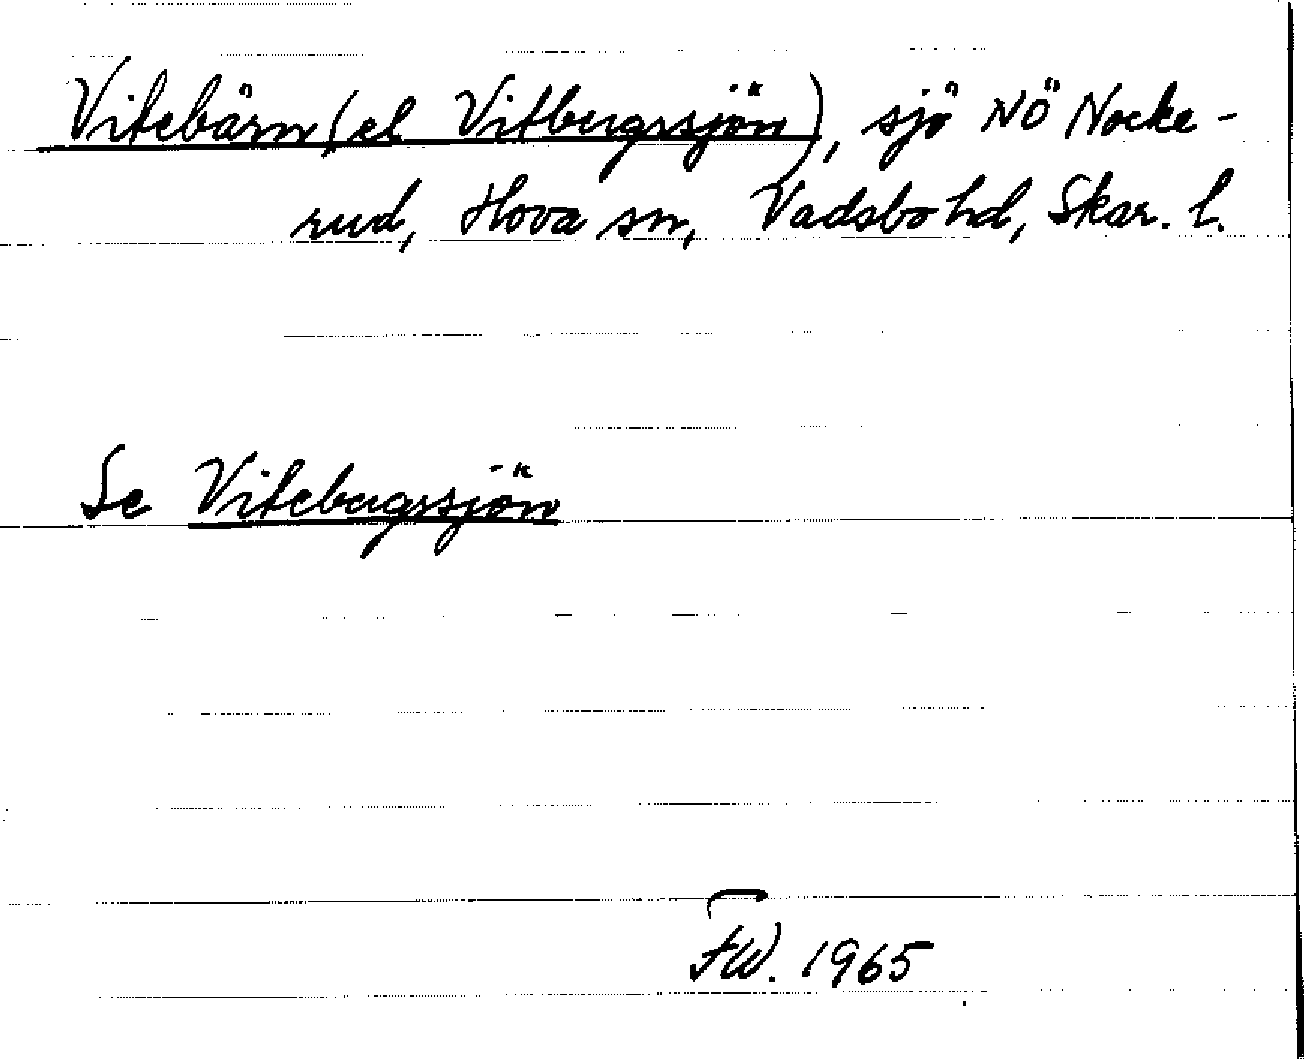 Vitebärn (el Vitbergssjön), sjö NÖ Nocke-
rud, Hova sn, Vadsbo hd, Skar. l.
Se Vitebergssjön
FW. 1965